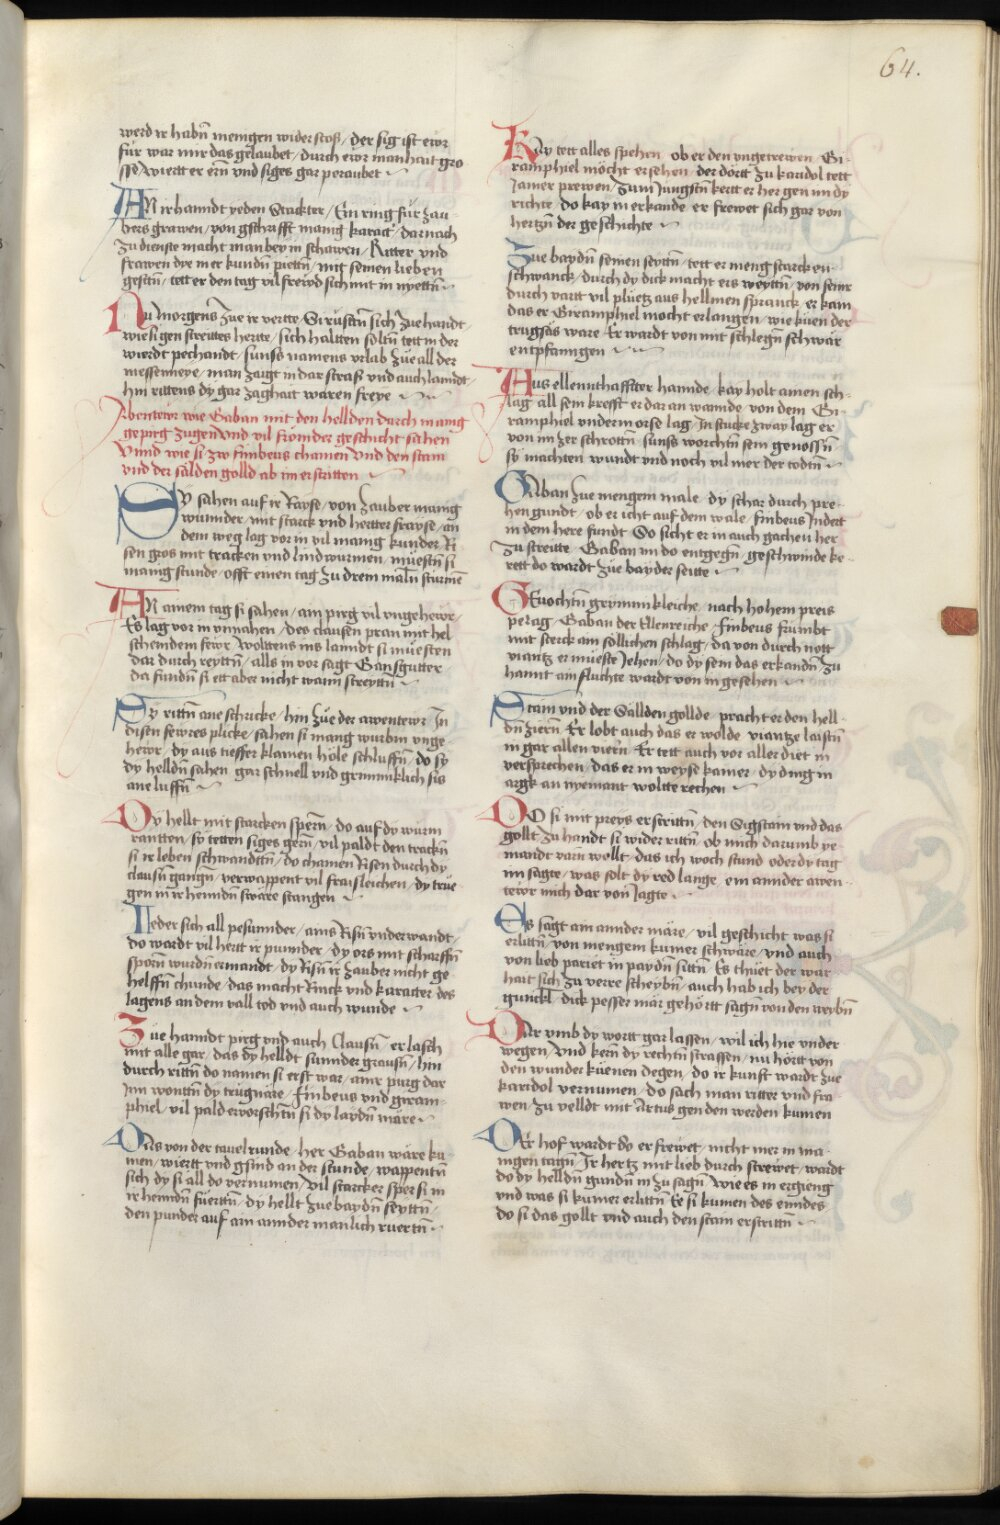 64.
werd ir habn̄ menigen widerstoß / der sig ist ewr
für war mir das gelaubet / durch ewr manhait gro
sse / wiertt er ern̄ vnd siges gar peraubet
AN ir hanndt yeden Strickter / Ein ring für zau-
bers grawen / von gschrifft manig karact / darnach
zu dienste macht man bey in schawen / Ritter vnd
frawen dye mer kundn̄ pietn̄ / mit seinen lieben
gestn̄ / tett er den tag vil frewd sich mit in nyettn̄
Nu morgens zue ir vertte / Si rustn̄ sich zue handt
wie si gen streittes hertte / sich haltten soltn̄ tett in der
wierdt pechandt / sunss namens vrlab zue all der
messenneye / man zaigt in dar straß vnd auch lanndt
hin rittens dy gar zaghait waren freye
Abentewr wie Gaban mit den hellden durch manig
gepirg zugen Vnd vil fromder geschicht sahen
Vnnd wie si zw fimbeus chamen Vnd den stam
vnd der sälden golld ab im erstritten
SY sahen auf ir Rayse / von zauber manig
wunnder / mit starck vnd hertter frayse / an
dem weg lag vor in vil manig kunder Ri-
sen gros mit tracken vnd lindwurmen / muestn̄ si
manig stunde / offt einen tag zu drem maln̄ sturmē
AN ainem tag si sahen / ain pirg vil vngehewr /
Es lag vor in vnnahen / des clausen pran mit hel
scheindem fewr / Wolttens ins lanndt si muesten
dar durch reyttn̄ / alls in vor sagt Gansguter
da fundn̄ si ett aber nicht wann streyttn̄
Dy rittn̄ ane schricke / hin zue der awentewr In
disen fewres plicke / sahen si manig wurbm̄ vnge-
hewr / dy aus tieffer klamen höle schluffn̄ / do sy
dy helldn̄ sahen gar schnell vnd grimiklich si s
ane luffn̄
Dy hellt mit starcken spern̄ / do auf dy wurm
rantten / sy tetten siges gern̄ / vil paldt den trackn̄
si ir leben schwandttn̄ / do chamen Risen durch dy
clausn̄ gangn̄ / verwappent vil fraisleichen / dy true
gen in ir henndn̄ swäre stangen
Ieder sich all pesunnder / ains Risn̄ vnderwandt /
do wardt vil hertt ir punnder / dy ors mit scharffn̄
sporn̄ wurdn̄ ermandt / dy Risn̄ ir zauber nicht ge
helffn̄ chunde / das macht Rinck vnd karacter des
lagens an dem vall tod vnd auch wunde
Zue hanndt pirg vnd auch Clausn̄ / er lasch
mit alle gar / das dy helldt sunnder grausn̄ / hin
durch rittn̄ do namen si erst war / ainr purg dar
Inn wontn̄ dy trugnäre / fimbeus vnd giram-
phiel / vil pald erworschtn̄ si dy laydn̄ märe
Das von der tauelrunde / her Gaban wäre ku-
men / wiertt vnd gsind an der stunde / wappentn̄
sich dy si all do vernumen / Vil starcker sper si in
ir henndn̄ fuerttn̄ / dy hellt zue baydn̄ seyttn̄ /
den punder auf ain annder manlich ruertn̄
Kay tett alles spehen / ob er den vngetrewen / Gi-
ramphiel möcht ersehen / der dortt zu karidol tett
Jamer prewen / zum Jungstn̄ kertt er her gen im dy
richte / do kay in erkande / er frewet sich gar von
hertzn̄ der geschichte
Zue baydn̄ seinen seyttn̄ / tett er meng starcken
schwanck / durch dy dick macht ers weyttn̄ / von seinr
durch vartt vil pluetz aus hellmen spranck / er kam
das er Giramphiel mocht erlangen / wie kuen der
trugsäs ware / Er wardt von mit schlegn̄ schwär
entpfanngen
Aus ellennthaffter hannde / kay holt ainen sch-
lag / all sein krefft er dar an wannde / von dem Gi-
ramphiel vnderm orse lag / In stucke zway lag er
von im zer schrottn̄ / sunss worchtn̄ sein genossn̄
sy machten wundt vnd noch vil mer der todtn̄
Gaban zue mengem male / dy schar durch pre-
hen gundt / ob er icht auf dem wale / fimbeus Indert
in dem here fundt / So sicht er in auch gachen her
zu streitte / Gaban im do entgegn̄ / geschwinde ke-
rett do wardt zue bayder seitte
Geuochtn̄ grymmkleiche / nach hohem preis
peiag / Gaban der Ellenreiche / fimbeus frumbt
mit sterck ain söllichen schlag / da von durch nott
viantz er mueste Jehen / do dy sein das erkandn̄ zu
hannt ain fluchte wardt von in gesehen
Stam vnd der Sällden gollde / pracht er den hell-
dn̄ ziern̄ / Er lobt auch das er wolde / viantze laistn̄
in gar allen viern̄ / Er tett auch vor aller diet in
versprechen / das er in weyse kainer / dy ding in
argk an nyemant woltte rechen
DO si mit preys erstrittn̄ / den Sigstam vnd das
gollt zu handt si wider rittn̄ / Ob mich darumb ye-
mandt varn wollt / das ich woch stund oder dy tag
im sagte / was solt dy red lange / ein annder awen-
tewr mich dar von Jagte
Es sagt ain annder märe / vil geschicht was si
erlittn̄ / von mengem kumer schwäre / vnd auch
von lieb pariet in paydn̄ sittn̄ / Es thuet der war-
hait sich zu verre scheybn̄ / auch hab ich bey der
gunckl / dick pesser mär gehörtt sagn̄ von den weybn̄
Dar vmb dy wortt gar lassen / wil ich hie vnder
wegen / Vnd kern̄ dy rechtn̄ strassen / nu hörtt von
den wunder kuenen degen / do ir kunft wardt zue
karidol vernumen / do sach man ritter vnd fra-
wen / zu velldt mit Artus gen den werden kumen
Der hof wardt do er frewet / nicht mer in ma-
nigen tagn̄ / Ir hertz mit lieb durch strewet / wardt
do dy helldn̄ gundn̄ in zu sagn̄ / Wie es in ergieng
vnd was si kumer erlittn̄ / Ee si kumen des enndes
do si das gollt vnd auch den stam erstrittn̄